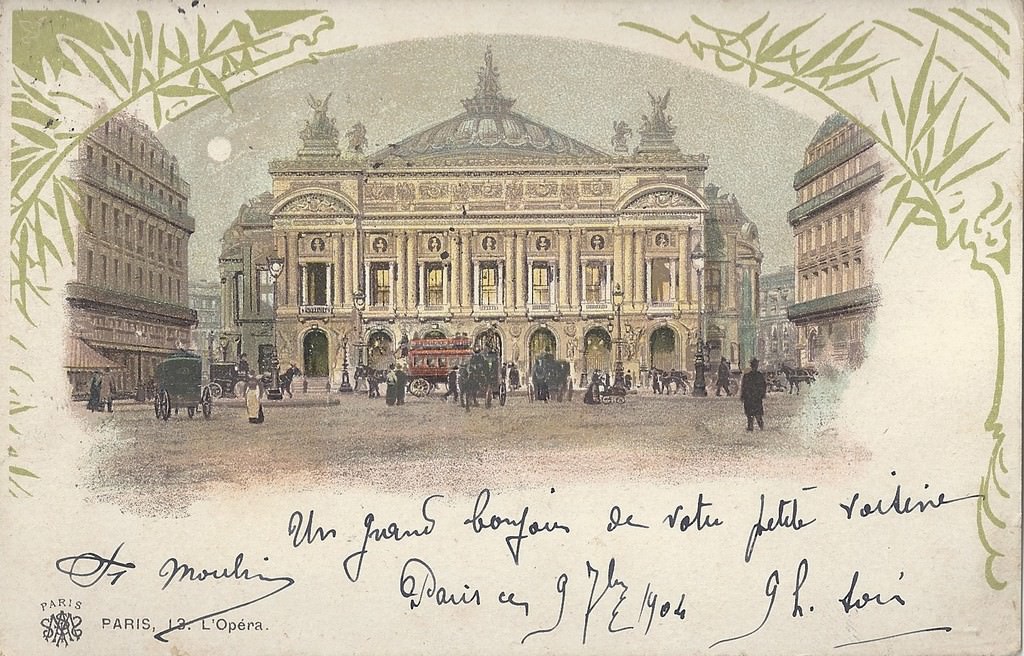 Un grand bonjour de votre petite voisine
Moulin
Paris ce 9 7bre 1904 9 h. soir
PARIS
PARIS, 13. L'Opéra.